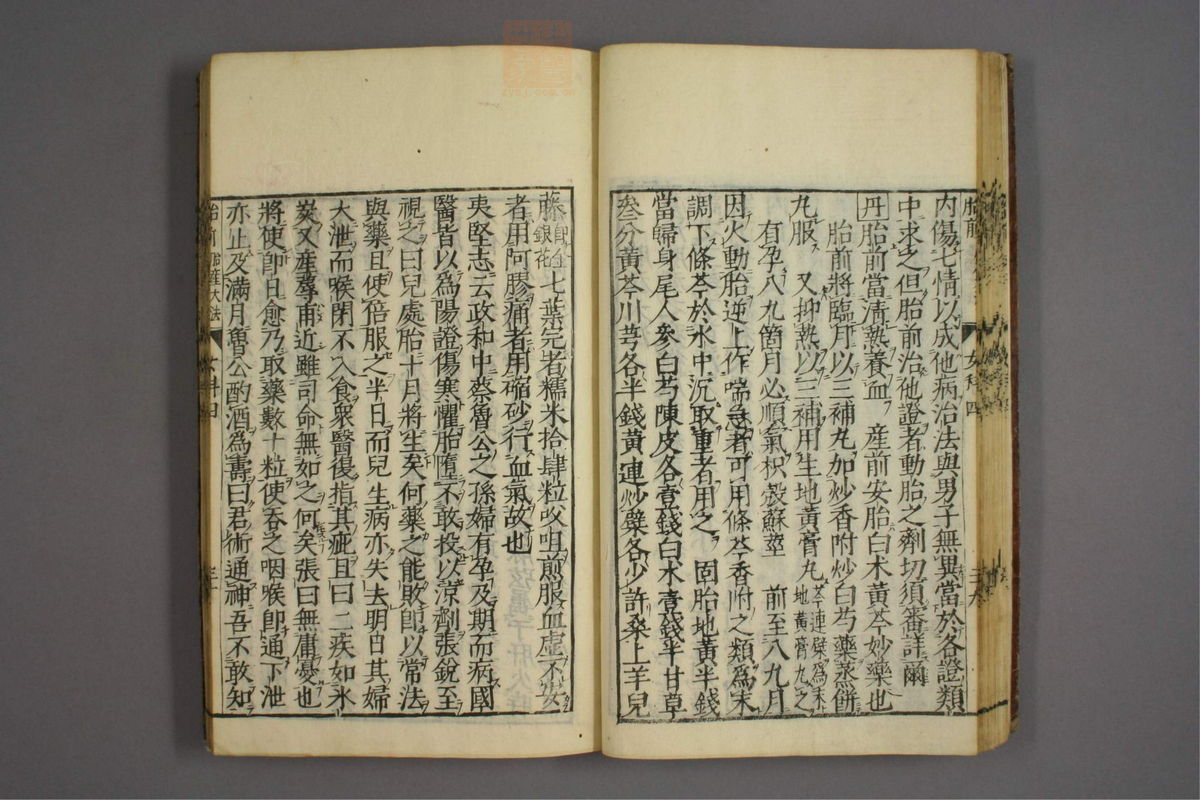 內傷七情以成他病治法與男子無異當於各證類
中求之但胎前治他證者動胎之劑切須審詳爾
丹 胎前當清熱養血 產前安胎白朮黃芩妙藥也
胎前將臨月以三補丸加炒香附炒白芍藥蒸餅
丸服 又抑熱以三補用生地黃膏丸 芩連蘗為末地黃膏丸之
有孕八九箇月必順氣枳殼蘇莖 前至八九月
因火動胎逆上作喘急者可用條芩香附之類為末
調下條芩於水中沉取重者用之 固胎地黃半錢
當歸身尾人參白芍陳皮各壹錢白朮壹錢半甘草
叁分黃芩川芎各半錢黃連炒蘗各少許桑上羊兒
藤 即金銀花 七葉完者糯米拾肆粒㕮咀煎服血虛不安
者用阿膠痛者用縮砂行血氣故也
夷堅志云政和中蔡魯公之孫婦有孕及期而病國
醫皆以為陽證傷寒懼胎墮不敢投以涼劑張銳至
視之曰兒處胎十月將生矣何藥之能敗即以常法
與藥且使倍服之半日而兒生病亦失去明日其婦
大泄而喉閉不入食衆醫復指其疵且曰二疾如氷
炭又產蓐甫近雖司命無如之何矣張曰無庸憂也
將使卽日愈乃取藥數十粒使吞之咽喉卽通下泄
亦止及滿月魯公酌酒為壽曰君術通神吾不敢知
胎前 女科四